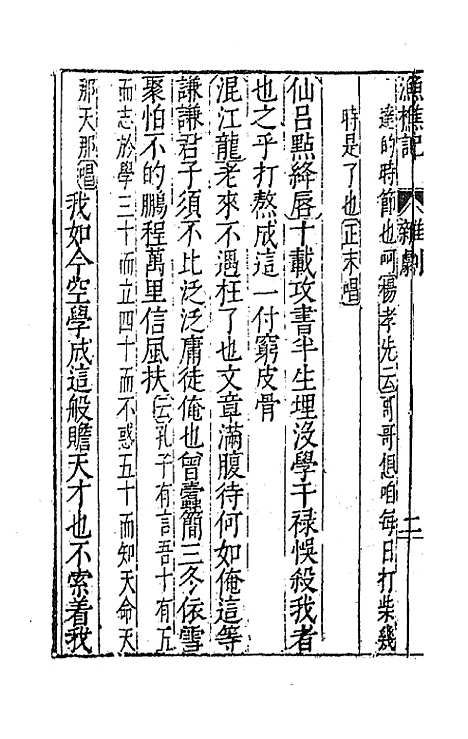 漁樵記 雜劇 二
達的時節也呵楊孝先云哥哥但咱每日打柴幾
時是了也正末唱
仙呂點絳唇十載攻書半生埋没學干禄悞殺我者
也之乎打熬成這一付窮皮骨
混江龍老來不遇枉了也文章滿腹待何如俺這等
謙謙君子須不比泛泛庸徒俺也曾蠹簡三冬依雪
聚怕不的鵬程萬里信風扶云孔子有言吾十有五
而志於學三十而立四十而不惑五十而知天命天
那天那唱我如今空學成這般贍天才也不索着我